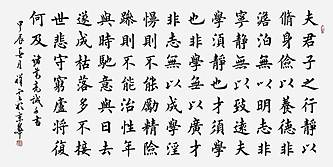 夫君子之行靜以
脩身儉以養德非
澹泊無以明志非
寧靜無以致遠夫
學須靜也才須學
也非學無以廣才
非志無以成學淫
慢則不能勵精險
躁則不能治性年
與時馳意與日去
遂成枯落多不接
世悲守窮廬將復
何及 諸葛亮誡子書
甲辰 月 於京華